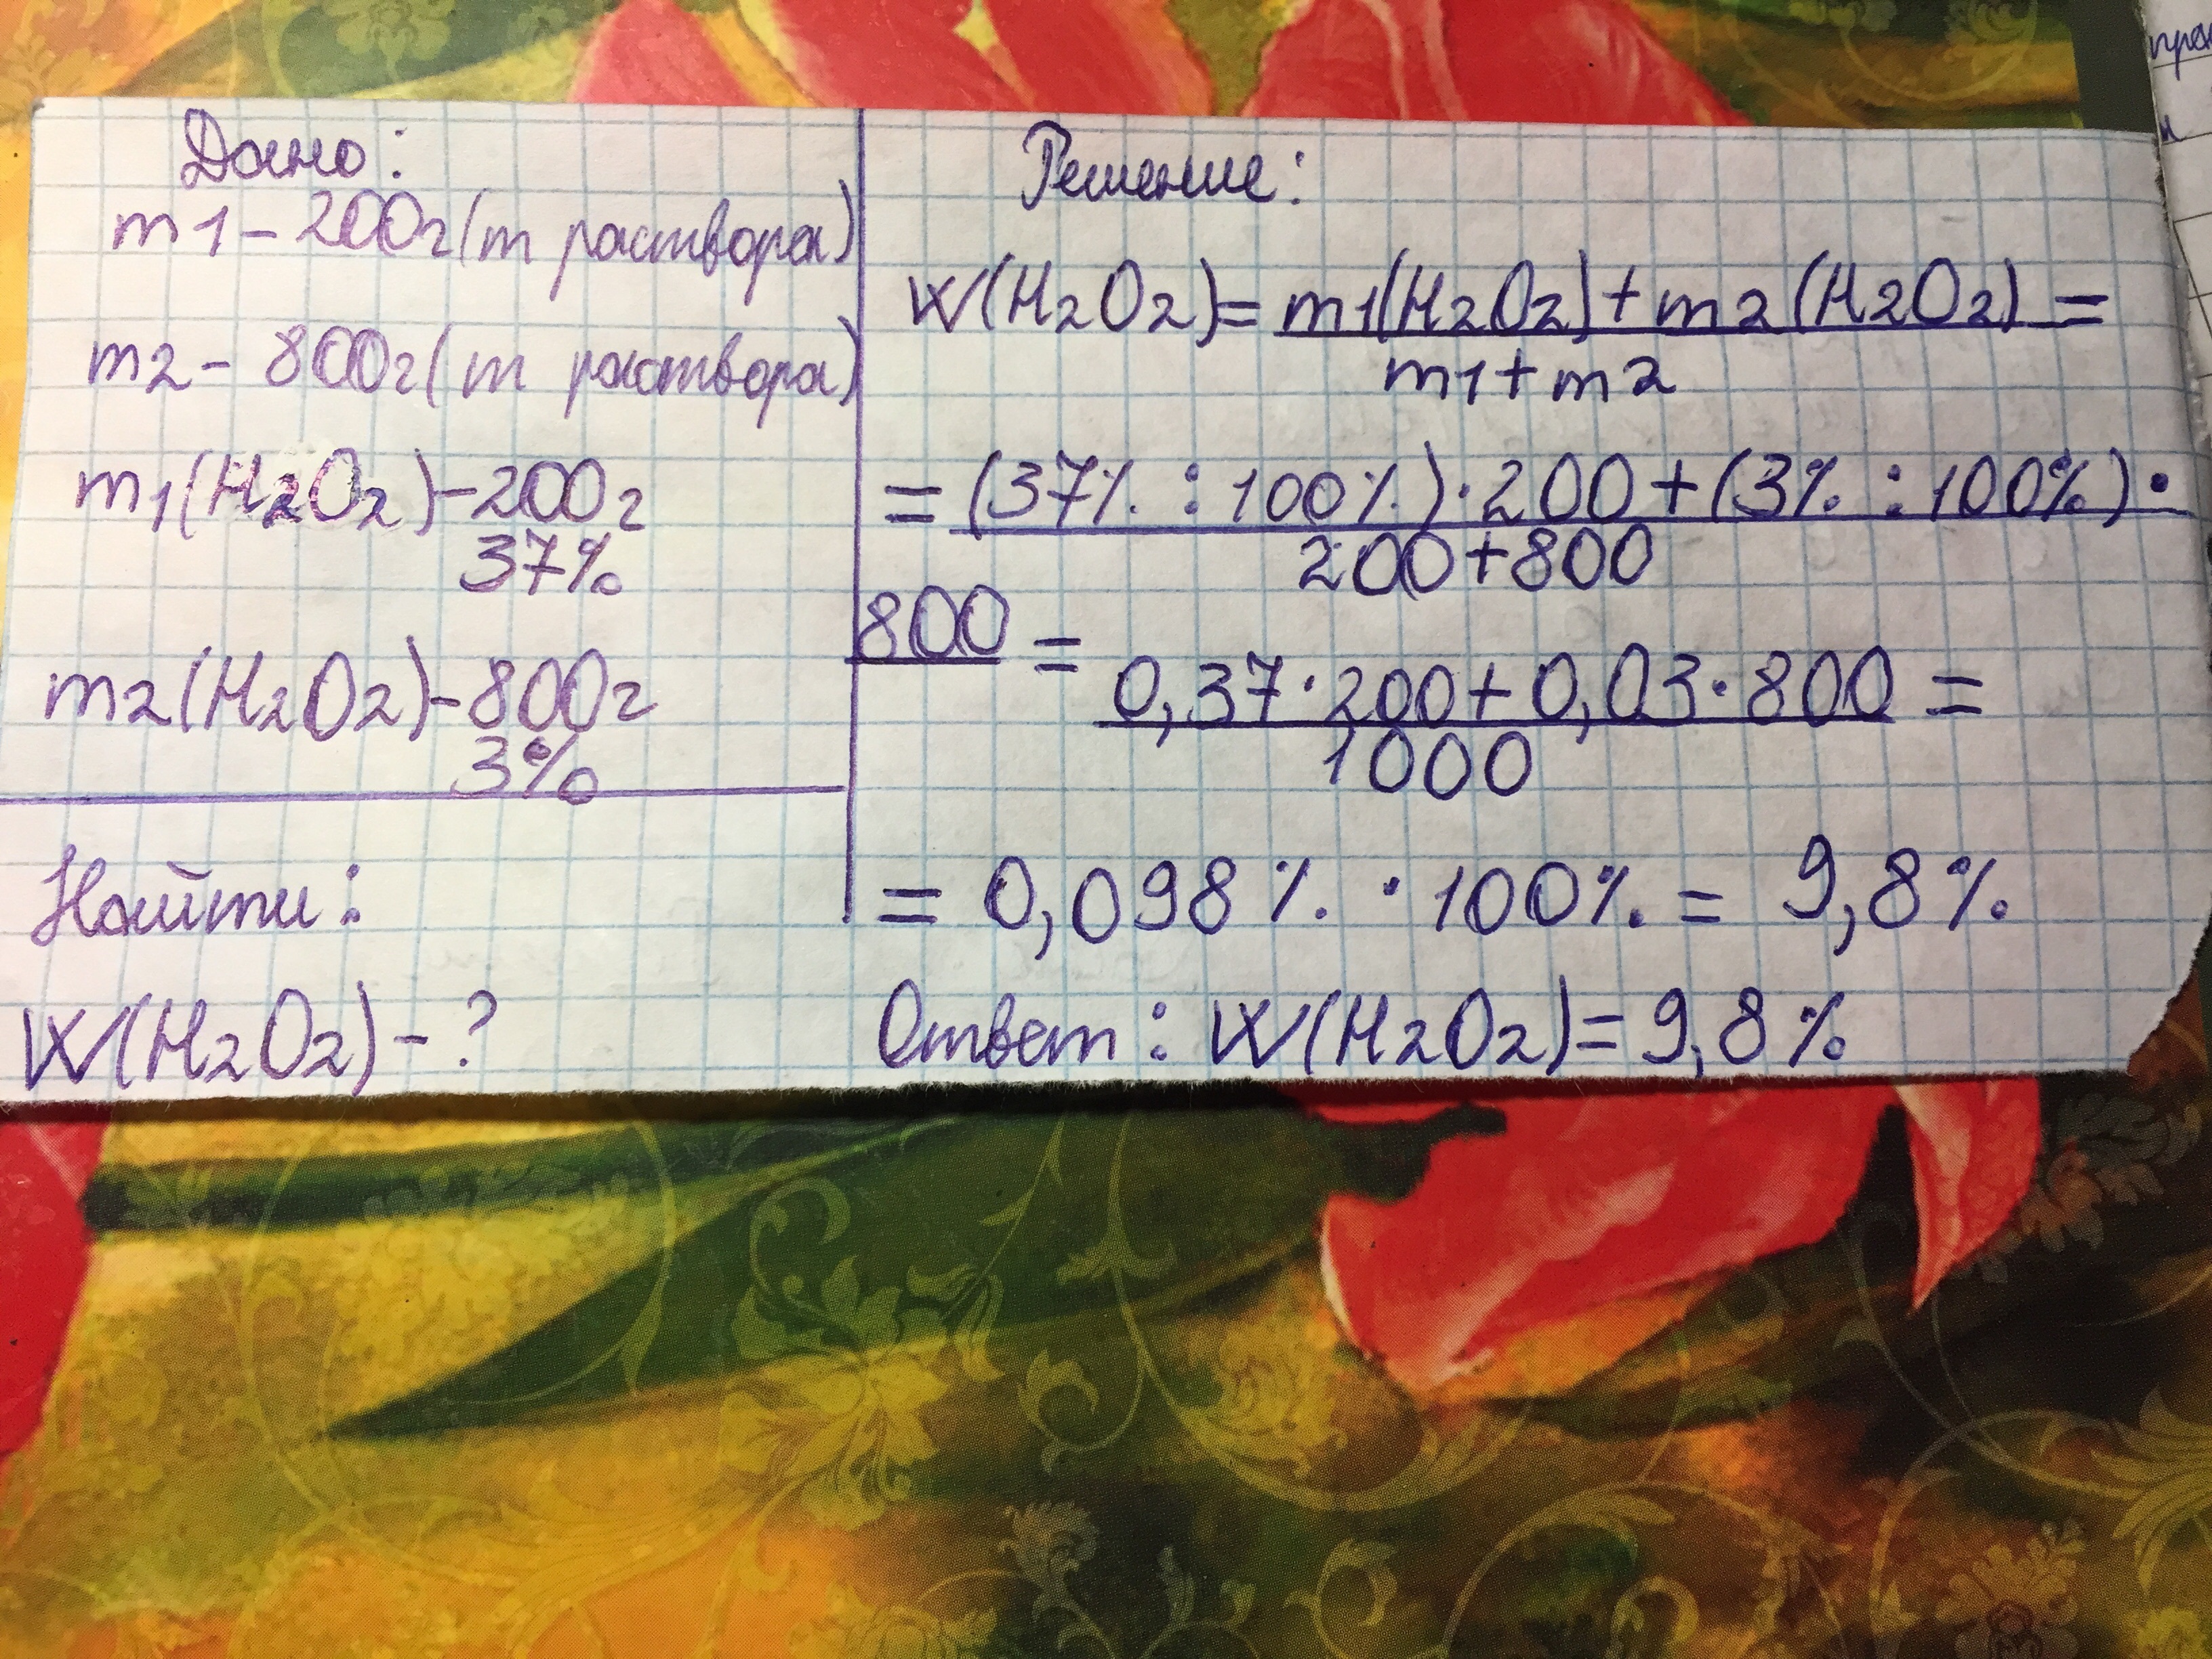 Дано:
m1 – 200г (m раствора)
m2 – 800г (m раствора)
m1(H2O2) – 200г
37%
m2(H2O2) – 800г
3%
Найти:
W(H2O2) – ?
Решение:
W(H2O2) = m1(H2O2) + m2(H2O2) =
m1 + m2
= (37% : 100%) · 200 + (3% : 100%) ·
200 + 800
800 =
0,37 · 200 + 0,03 · 800 =
1000
= 0,098% · 100% = 9,8%
Ответ: W(H2O2) = 9,8%